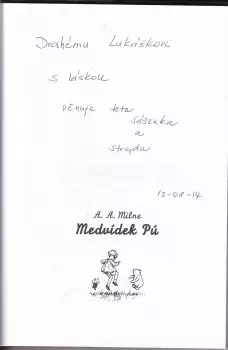 Drahému Lukáškovi
s láskou
věnuje teta
Sášenka
a
strejda
12-08-14
A. A. Milne
Medvídek Pú